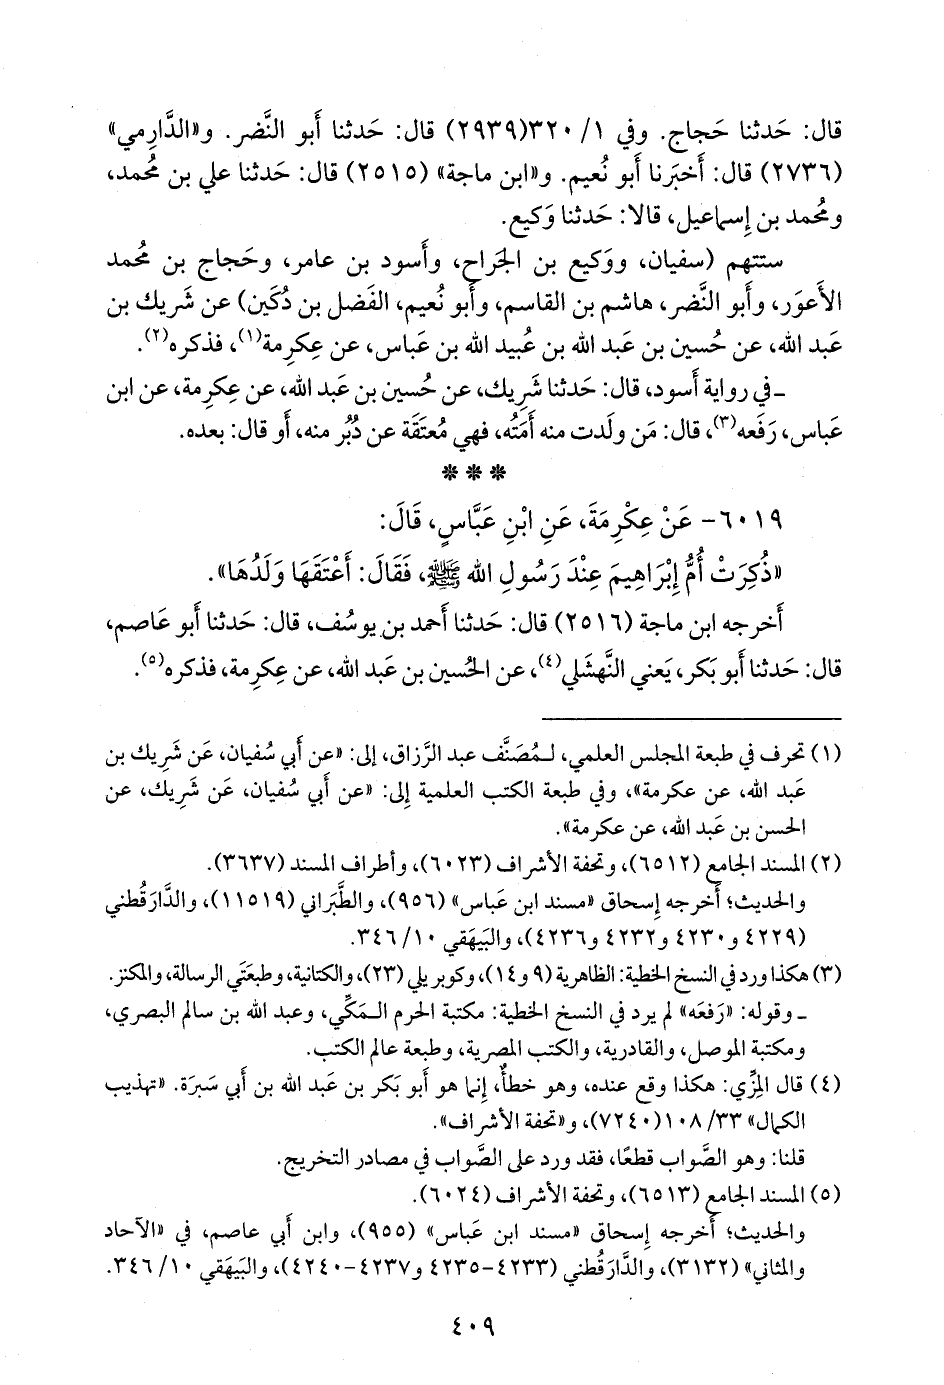 قال: حَدثنا حَجاج. وفي ١/ ٣٢٠(٢٩٣٩) قال: حَدثنا أَبو النَّضر. و«الدَّارِمي»
(٢٧٣٦) قال: أَخبَرنا أَبو نُعيم. و«ابن ماجة» (٢٥١٥) قال: حَدثنا علي بن مُحمد،
ومُحمد بن إِسماعيل، قالا: حَدثنا وَكيع.
ستتهم (سفيان، ووَكيع بن الجَراح، وأَسود بن عامر، وحَجاج بن مُحمد
الأَعوَر، وأَبو النَّضر، هاشم بن القاسم، وأَبو نُعيم، الفَضل بن دُكَين) عن شَريك بن
عَبد الله، عن حُسين بن عَبد الله بن عُبيد الله بن عَباس، عن عِكرِمة(١)، فذكره(٢).
ـ في رواية أَسود، قال: حَدثنا شَريك، عن حُسين بن عَبد الله، عن عِكرِمة، عن ابن
عَباس، رَفَعه(٣)، قال: مَن ولَدت منه أَمَتُه، فهي مُعتَقَة عن دُبُر منه، أَو قال: بعده.
* * *
٦٠١٩- عَنْ عِكْرِمَةَ، عَنِ ابْنِ عَبَّاسٍ، قَالَ:
«ذُكِرَتْ أُمُّ إِبْرَاهِيمَ عِنْدَ رَسُولِ الله ﷺ، فَقَالَ: أَعْتَقَهَا وَلَدُهَا».
أَخرجه ابن ماجة (٢٥١٦) قال: حَدثنا أَحمد بن يوسُف، قال: حَدثنا أَبو عَاصم،
قال: حَدثنا أَبو بَكر، يَعني النَّهشَلي(٤)، عن الحُسين بن عَبد الله، عن عِكرِمة، فذكره(٥).
(١) تحرف في طبعة المجلس العلمي، لـمُصَنَّف عبد الرَّزاق، إلى: «عن أَبي سُفيان، عَن شَريك بن
عَبد الله، عن عكرمة»، وفي طبعة الكتب العلمية إِلى: «عن أَبي سُفيان، عَن شَرِيك، عن
الحسن بن عَبد الله، عن عكرمة».
(٢) المسند الجامع (٦٥١٢)، وتحفة الأشراف (٦٠٢٣)، وأطراف المسند (٣٦٣٧).
والحديث؛ أَخرجه إِسحاق «مسند ابن عَباس» (٩٥٦)، والطَّبَراني (١١٥١٩)، والدَّارَقُطني
(٤٢٢٩ و٤٢٣٠ و٤٢٣٢ و٤٢٣٦)، والبَيهَقي ١٠/ ٣٤٦.
(٣) هكذا ورد في النسخ الخطية: الظاهرية (٩ و١٤)، وكوبريلي (٢٣)، والكتانية، وطبعَتَي الرسالة، والمكنز.
ـ وقوله: «رَفعَه» لم يرد في النسخ الخطية: مكتبة الحرم الـمَكِّي، وعبد الله بن سالم البصري،
ومكتبة الموصل، والقادرية، والكتب المصرية، وطبعة عالم الكتب.
(٤) قال المِزِّي: هكذا وقع عنده، وهو خطأٌ، إِنما هو أَبو بَكر بن عَبد الله بن أَبي سَبرَة. «تهذيب
الكمال» ٣٣/ ١٠٨(٧٢٤٠)، و«تحفة الأشراف».
قلنا: وهو الصَّواب قطعًا، فقد ورد على الصَّواب في مصادر التخريج.
(٥) المسند الجامع (٦٥١٣)، وتحفة الأشراف (٦٠٢٤).
والحديث؛ أَخرجه إِسحاق «مسند ابن عَباس» (٩٥٥)، وابن أَبي عاصم، في «الآحاد
والمثاني» (٣١٣٢)، والدَّارَقُطني (٤٢٣٣-٤٢٣٥ و٤٢٣٧-٤٢٤٠)، والبَيهَقي ١٠/ ٣٤٦.
٤٠٩